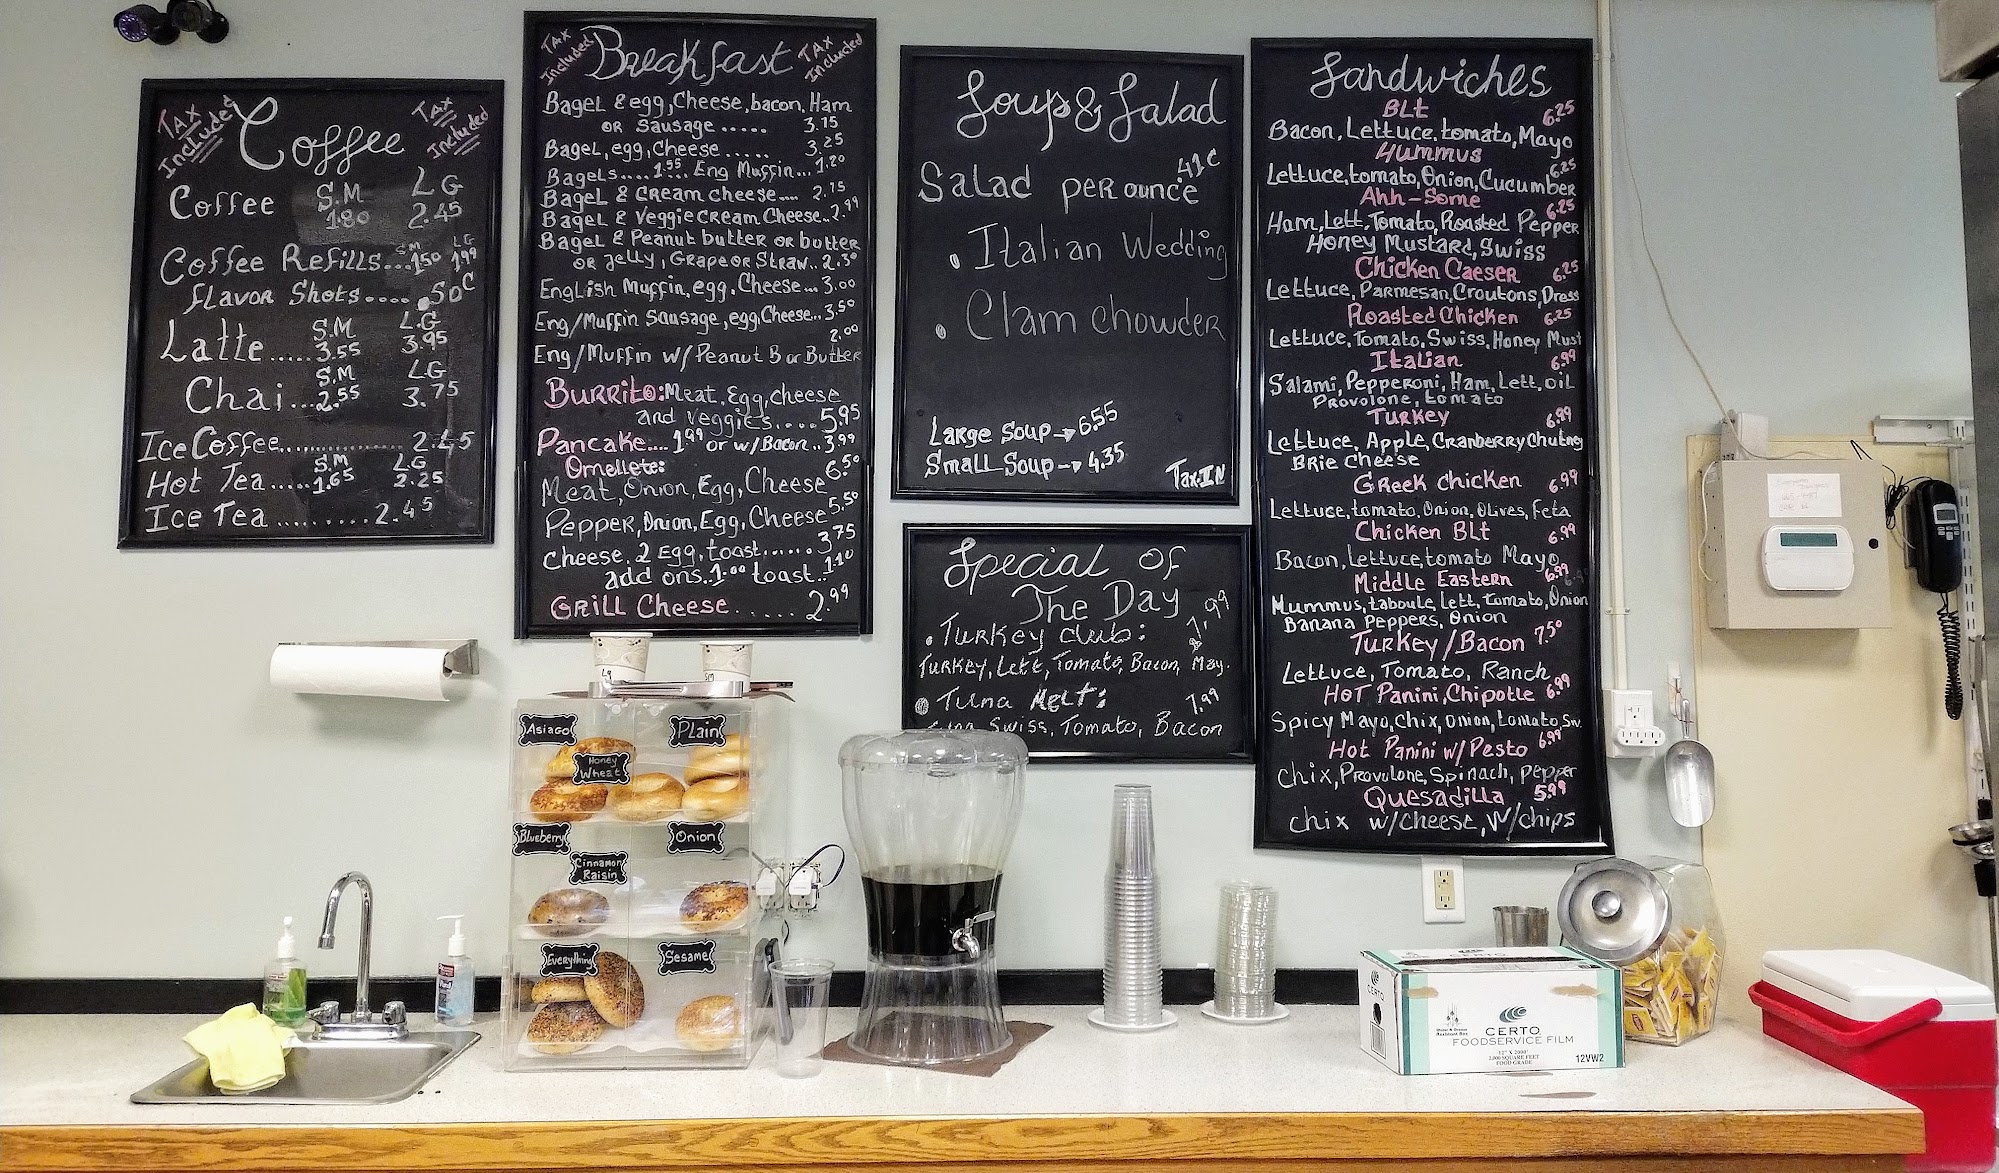 TAX Included
TAX Included
Coffee
S.M LG
Coffee 1.80 2.45
SM LG
Coffee Refills...1.50 1.99
flavor Shots.... .50¢
S.M L.G
Latte.....3.55 3.95
S.M LG
Chai...2.55 3.75
Ice Coffee............ 2.45
S.M LG
Hot Tea.....1.65 2.25
Ice Tea.........2.45
TAX Included
TAX Included
Breakfast
Bagel & egg, Cheese, bacon, Ham
or Sausage ..... 3.75
Bagel, egg, Cheese ..... 3.25
Bagels....1.55.. Eng Muffin...1.20
Bagel & Cream cheese.... 2.75
Bagel & Veggie Cream Cheese..2.99
Bagel & Peanut butter or butter
or jelly, Grape or Straw.. 2.30
English Muffin, egg, Cheese...3.00
Eng/Muffin Sausage, egg, Cheese..3.50
2.00
Eng/Muffin w/Peanut B or Butter
Burrito: Meat, Egg, cheese
and veggies.....5.95
Pancake....1.99 or w/Bacon..3.99
Omellete:
Meat, Onion, Egg, Cheese 6.50
Pepper, Onion, Egg, Cheese 5.50
Cheese, 2 Egg, toast......3.75
add ons..1.00 toast..1.10
Grill Cheese ..... 2.99
Soup & Salad
41¢
Salad per ounce
• Italian Wedding
• Clam chowder
Large Soup → 6.55
Small Soup → 4.35
Tax-IN
Special Of
The Day
• Turkey club: 7.99
Turkey, Lett, Tomato, Bacon, May.
Tuna Melt: 7.99
Swiss, Tomato, Bacon
Sandwiches
BLt 6.25
Bacon, Lettuce, tomato, Mayo
Hummus 6.25
Lettuce, tomato, Onion, Cucumber
Ahh-Some 6.25
Ham, Lett, Tomato, Roasted Pepper
Honey Mustard, Swiss
Chicken Caeser 6.25
Lettuce, Parmesan, Croutons, Dress
Roasted Chicken 6.25
Lettuce, Tomato, Swiss, Honey Must
Italian 6.99
Salami, Pepperoni, Ham, Lett, oil
Provolone, tomato
Turkey 6.99
Lettuce, Apple, Cranberry Chutney
Brie Cheese
Greek Chicken 6.99
Lettuce, tomato, Onion, Olives, Feta
Chicken BLt 6.99
Bacon, Lettuce, tomato Mayo
Middle Eastern 6.99
Mummus, taboule, Lett, tomato, Onion
Banana Peppers, Onion
Turkey/Bacon 7.50
Lettuce, Tomato, Ranch
Hot Panini, Chipotle 6.99
Spicy Mayo, Chix, Onion, tomato, Sw.
Hot Panini w/ Pesto 6.99
Chix, Provolone, Spinach, pepper
Quesadilla 5.99
Chix w/Cheese, W/chips
Lg
SM
Asiago
Plain
Honey
Wheat
Blueberry
Onion
Cinnamon
Raisin
Everything
Sesame
CERTO
CERTO
FOODSERVICE FILM
12" X 2000'
2,000 SQUARE FEET
FOOD GRADE
12VW2